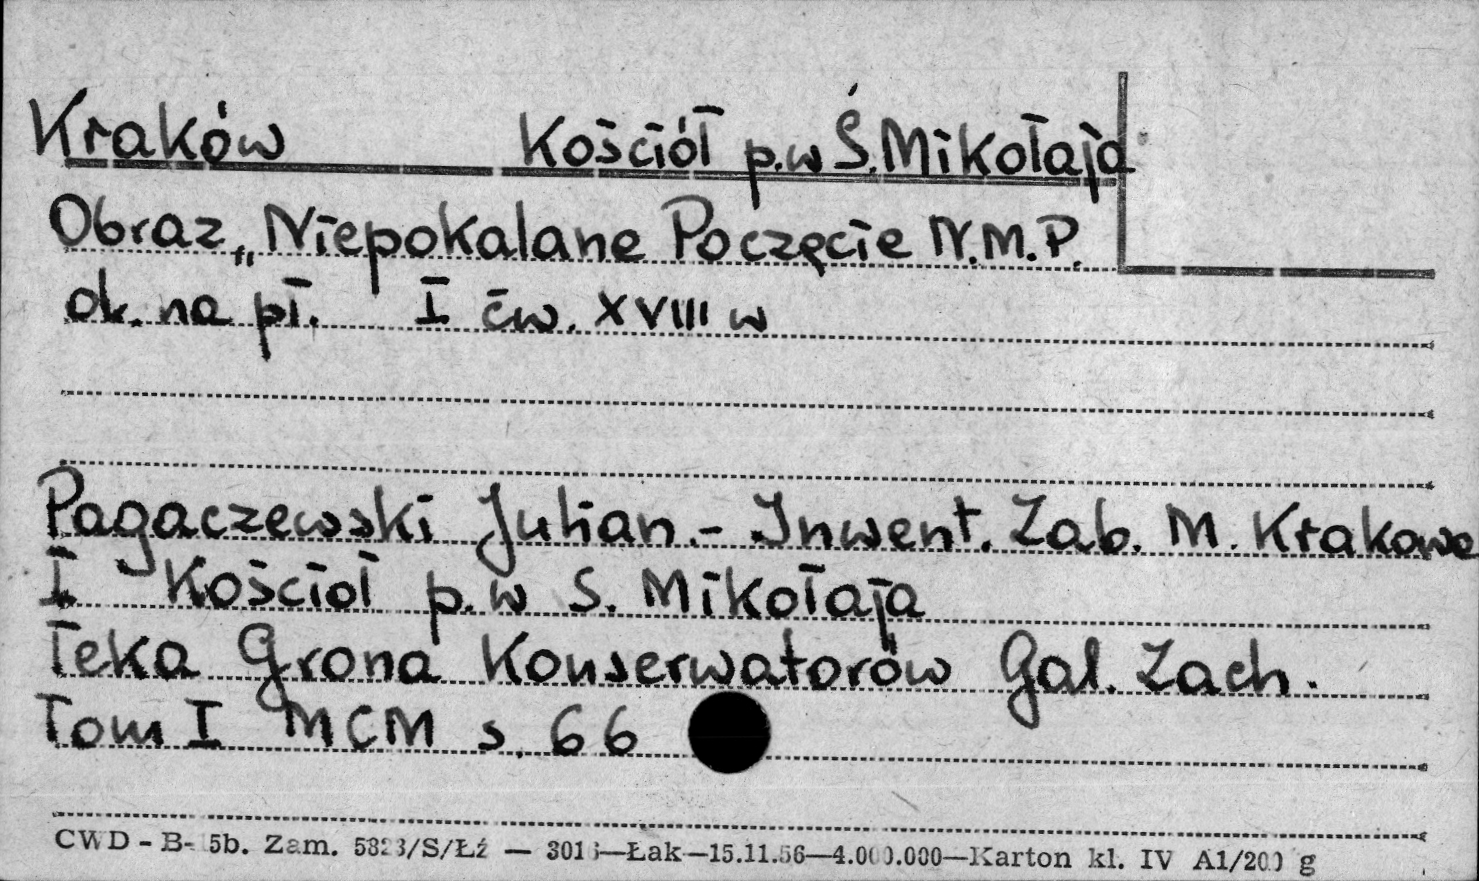 Kraków Kościół p.w Ś. Mikołaja
Obraz „Niepokalane Poczęcie N.M.P.
ok. na pł. I ćw. XVIII w
Pagaczewski Julian.- Inwent. Zab. M. Krakowa
I Kościoł p.w S. Mikołaja
Teka Grona Konserwatorów Gal. Zach.
Tom I MCM s. 66
CWD - B- 5b. Zam. 5823/S/Łź — 3016—Łak—15.11.56—4.000.000—Karton kl. IV A1/200 g